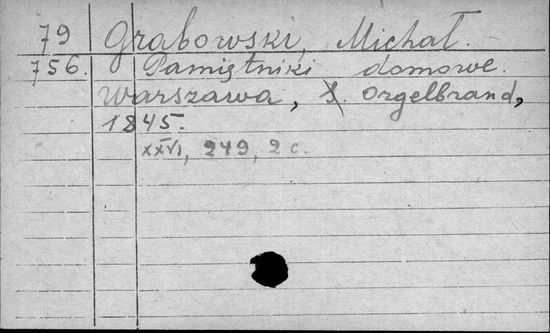 79 Grabowski, Michał.
756. Pamiętniki domowe.
Warszawa, S. Orgelbrand,
1845.
XXVI, 249, 2 c.